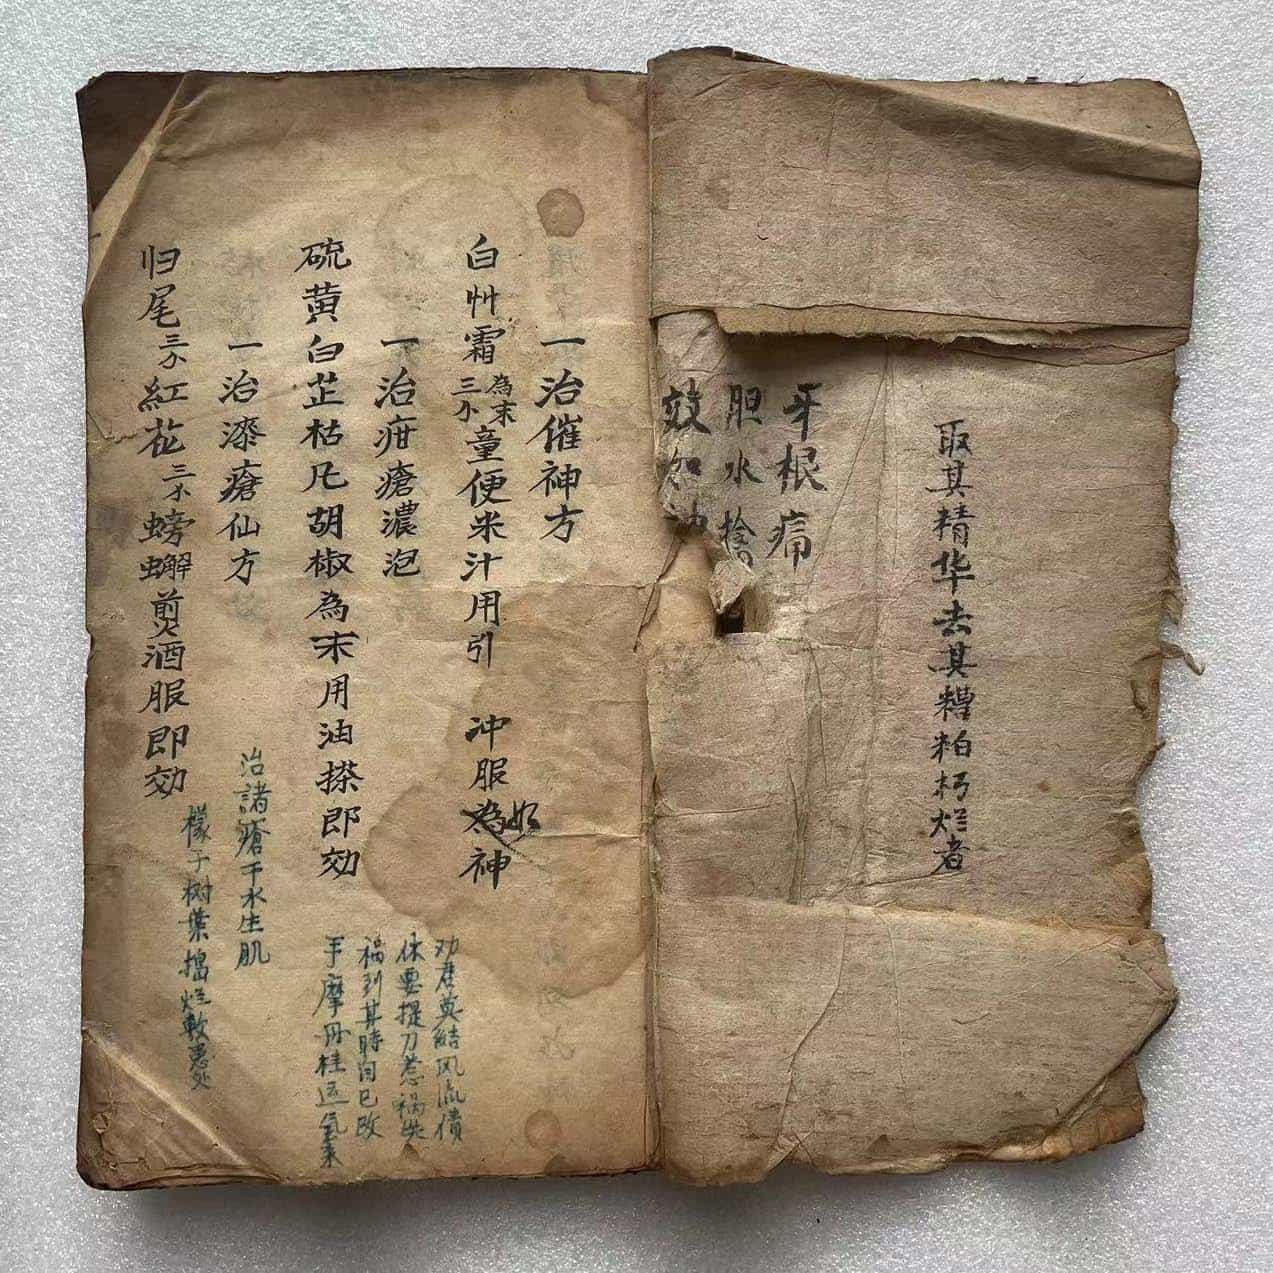 取其精华去其糟粕朽烂者
牙根痛
胆水搽
效如神
一治催神方
白艸霜為末三个童便米汁用引 冲服為如神
一治疳瘡濃泡
硫黄白芷枯凡胡椒為末用油搽即効
一治漆瘡仙方
归尾三个紅花三个螃蠏煎酒服即効
劝君莫結风流債
休要提刀惹祸
祸到其時自己改
手摩丹桂运氣来
治諸瘡干水生肌
樣子树葉搗烂敷患处